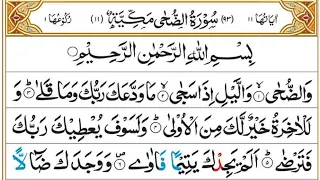 اٰيَاتُهَا ١١ (٩٣) سُوْرَةُ الضُّحٰى مَكِّيَّةٌ (١١) رُكُوْعُهَا ١
بِسْمِ اللّٰهِ الرَّحْمٰنِ الرَّحِيْمِ
وَالضُّحٰى ۙ١ وَالَّيْلِ اِذَا سَجٰى ۙ٢ مَا وَدَّعَكَ رَبُّكَ وَمَا قَلٰى ؕ٣ وَ
لَلْاٰخِرَةُ خَيْرٌ لَّكَ مِنَ الْاُوْلٰى ؕ٤ وَلَسَوْفَ يُعْطِيْكَ رَبُّكَ
فَتَرْضٰى ؕ٥ اَلَمْ يَجِدْكَ يَتِيْمًا فَاٰوٰى ۪٦ وَوَجَدَكَ ضَآلًّا